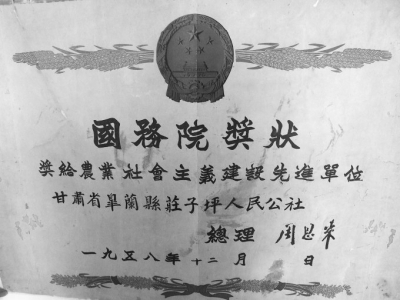 國務院獎狀
獎給農業社會主義建設先進單位
甘肅省皐蘭縣莊子坪人民公社
總理 周恩來
一九五八年十二月 日